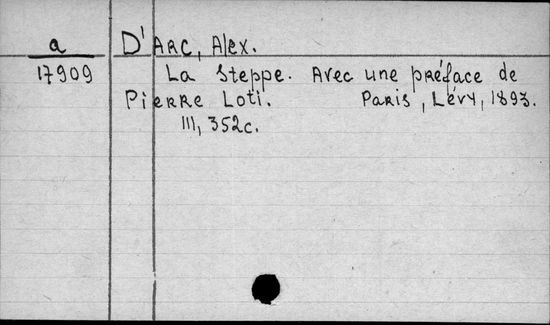 a
17909
D'ARC, Alex.
La Steppe. Avec une préface de
Pierre Loti. Paris, Lévy, 1893.
III, 352c.